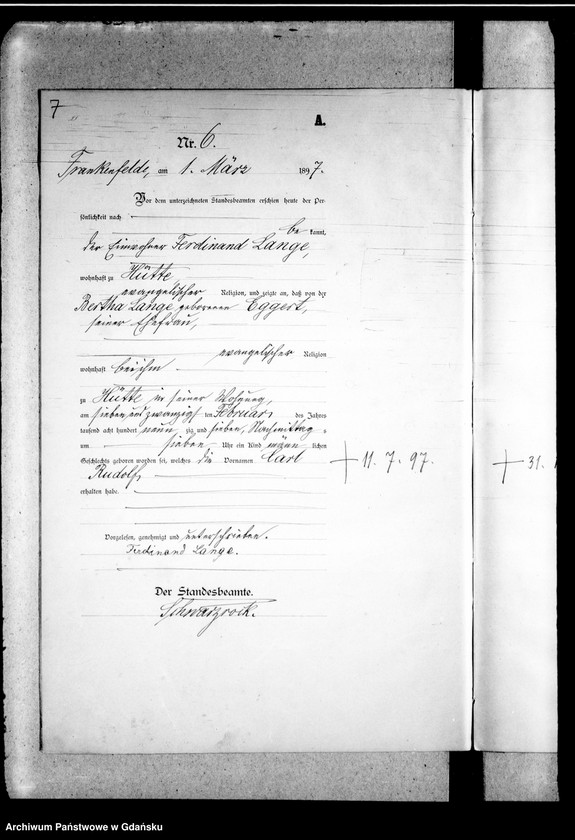 7
A.
Nr. 6.
Frankenfelde, am 1. März 1897.
Vor dem unterzeichneten Standesbeamten erschien heute der Per-
sönlichkeit nach
be kannt,
der Einwohner Ferdinand Lange,
wohnhaft zu Hütte,
evangelischer Religion, und zeigte an, daß von der
Bertha Lange geborenen Eggert,
seiner Ehefrau,
evangelischer Religion
wohnhaft bei ihm
zu Hütte in seiner Wohnung,
am sieben und zwanzigsten Februar des Jahres
tausend acht hundert neun zig und sieben, Nachmittag s
um sieben Uhr ein Kind männ lichen
Geschlechts geboren worden sei, welches die Vornamen Carl
Rudolf,
erhalten habe.
+ 11. 7. 97.
+ 31.
Vorgelesen, genehmigt und unterschrieben.
Ferdinand Lange.
Der Standesbeamte.
Schwarzrock.
Archiwum Państwowe w Gdańsku